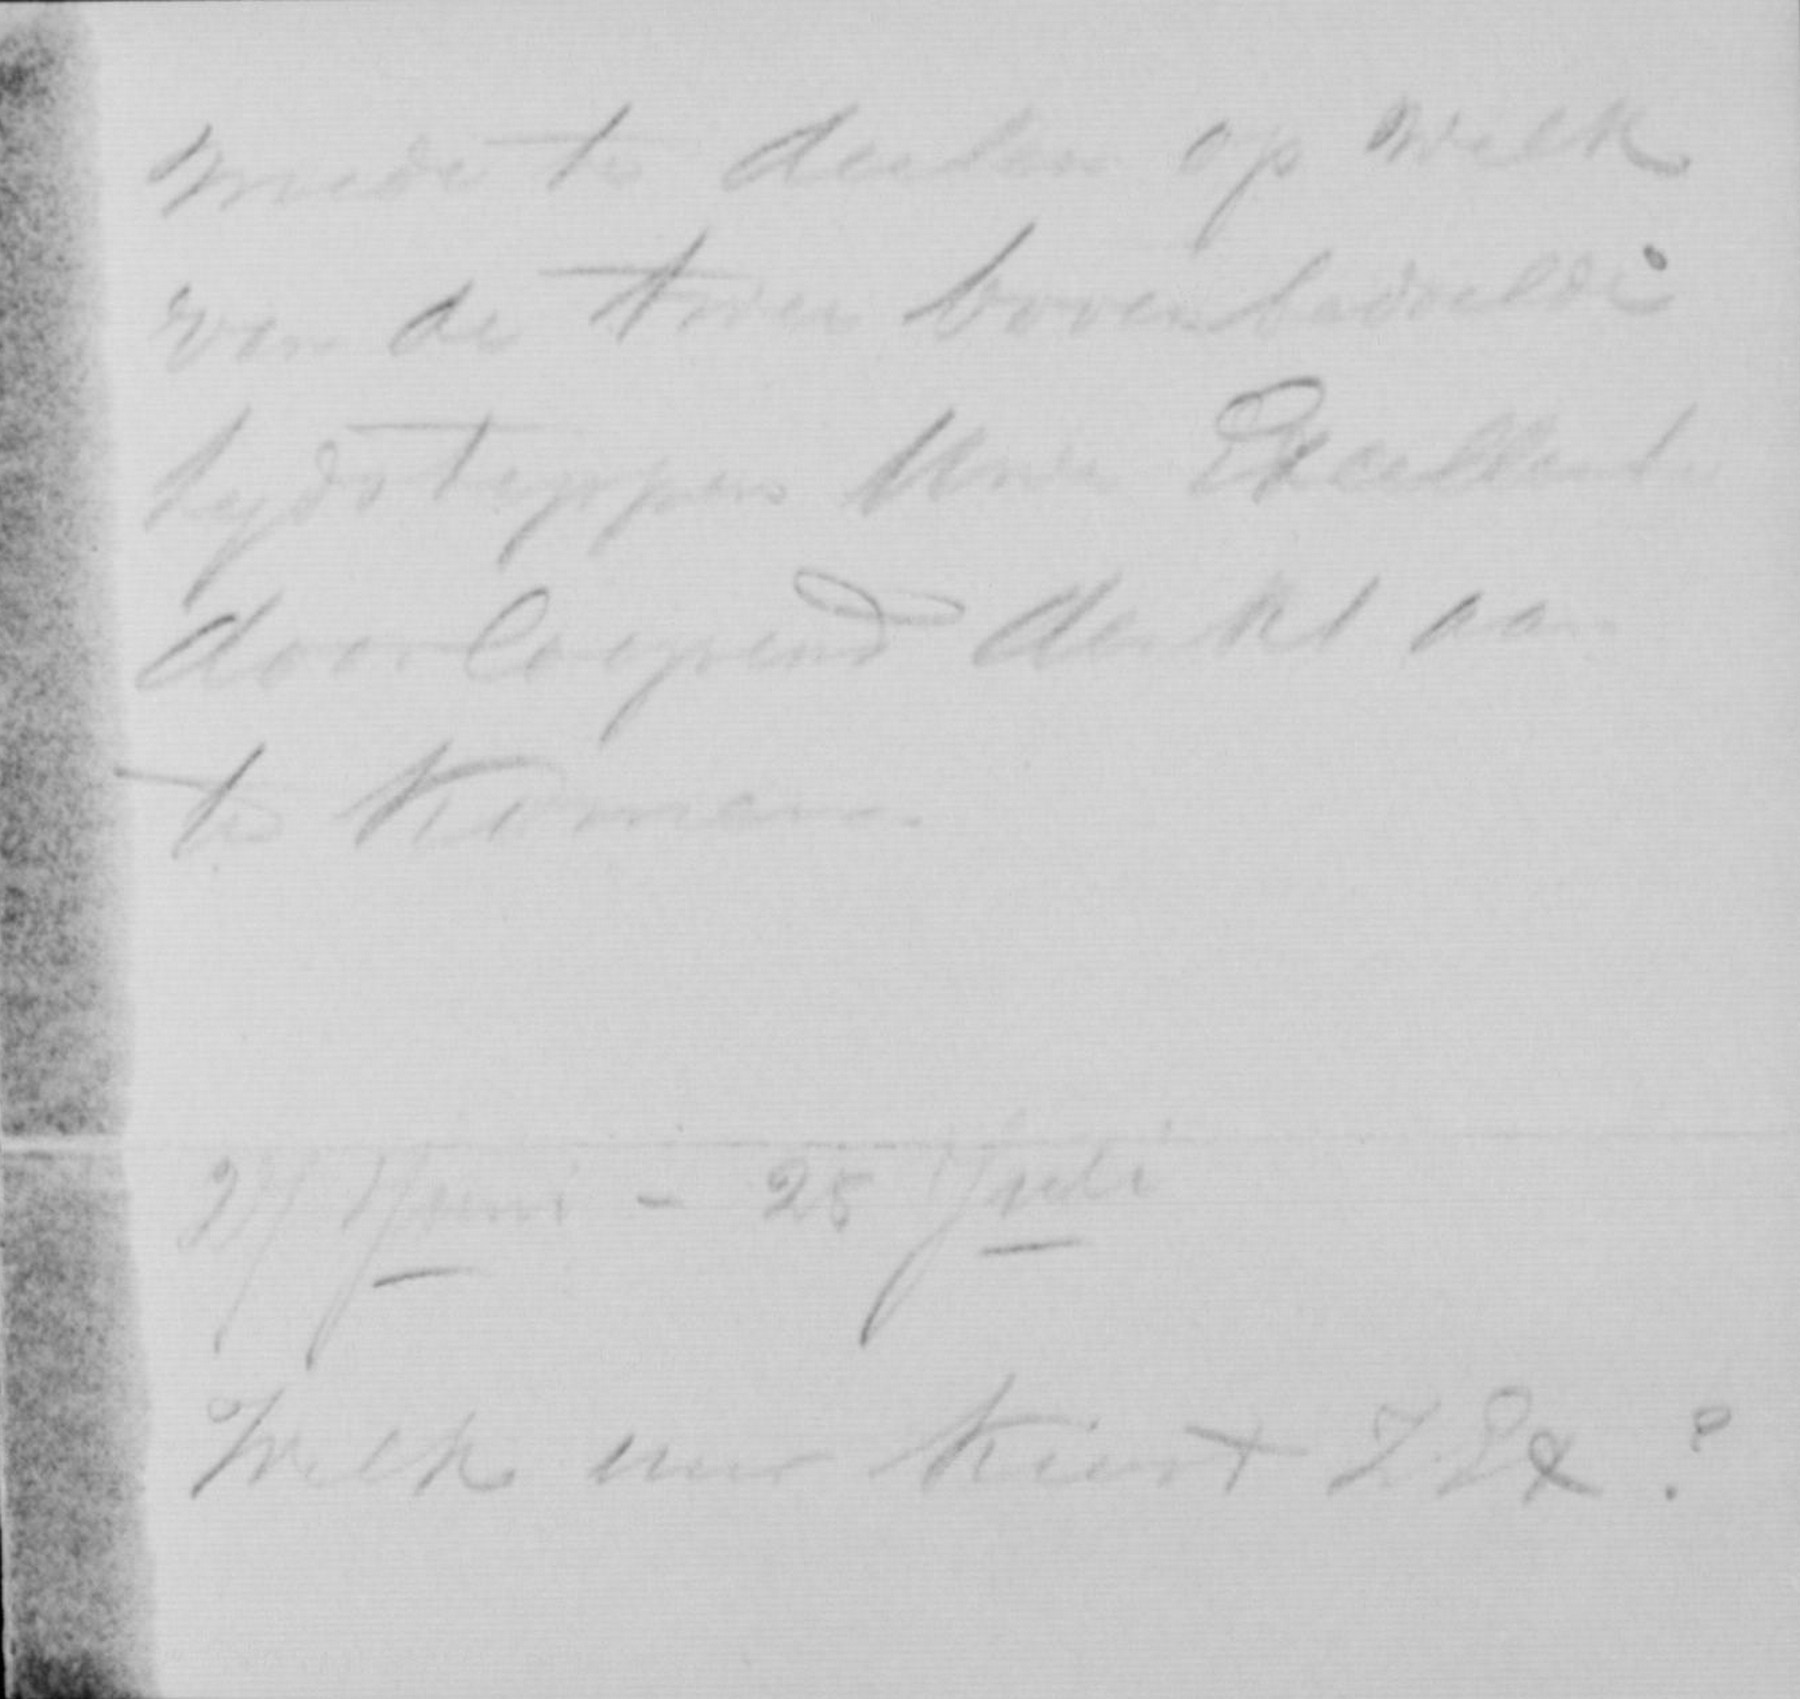 mede te deelen op welk
van de twee bovenbedoelde
tijdstippen Uwe Excellentie
doorloopend denkt aan
te komen.
27 Juni - 28 Juli
Welk uur kiest Z. Ex.?